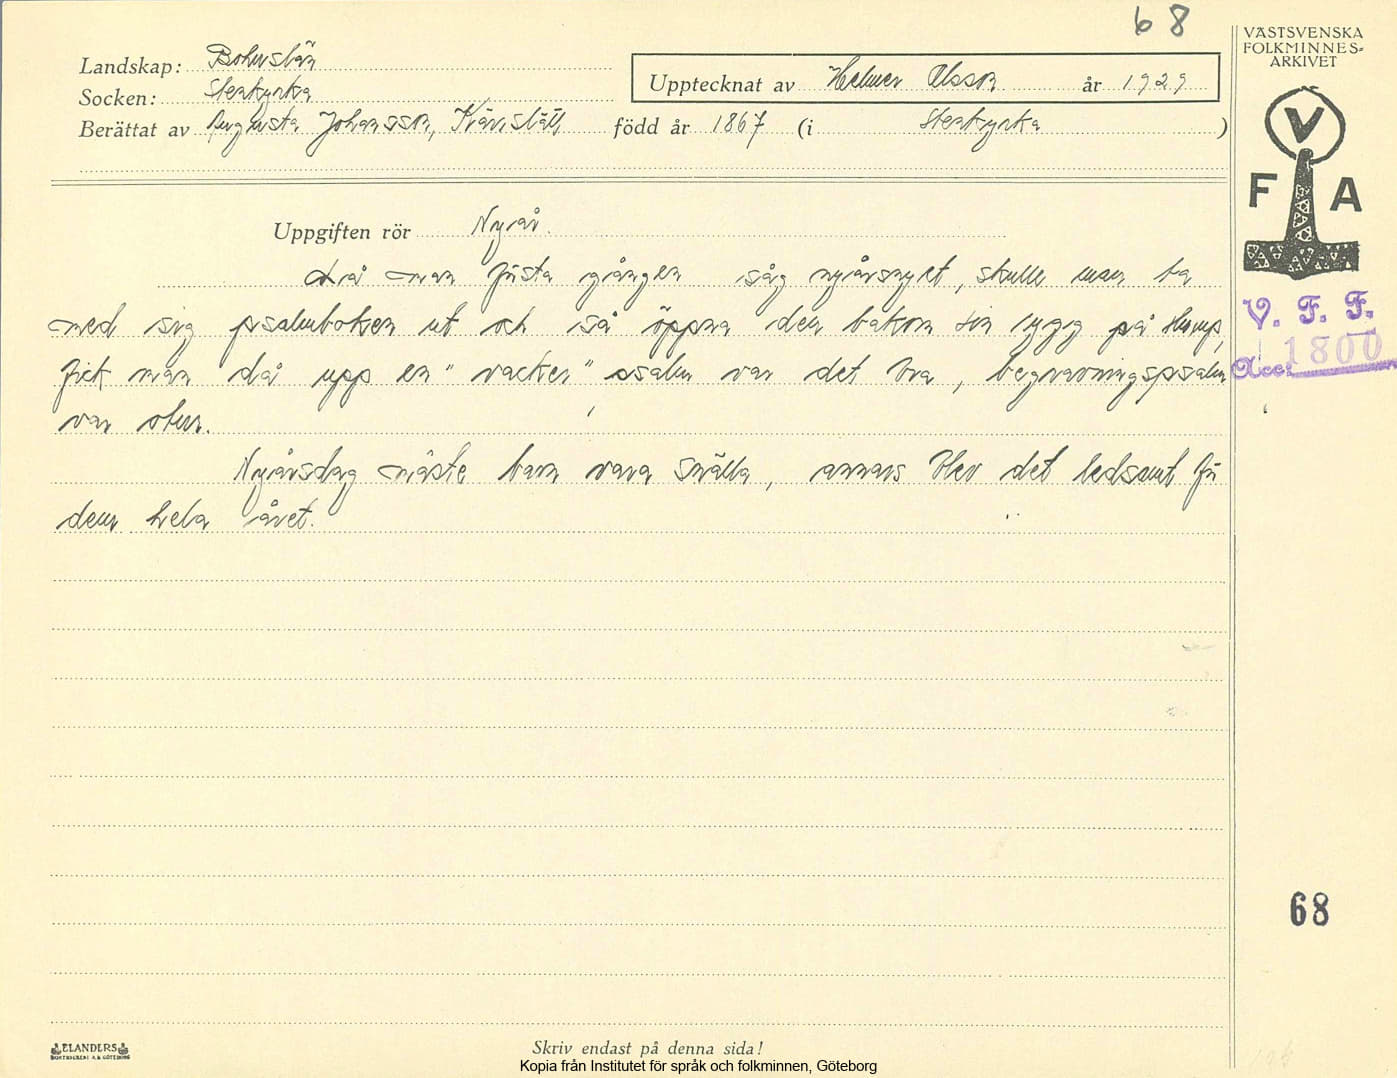 68
VÄSTSVENSKA
FOLKMINNES-
ARKIVET
Landskap: Bohuslän
Socken: Stenkyrka
Upptecknat av Helmer Olsson år 1929
Berättat av Augusta Johansson, född år 1867 (i Stenkyrka)
V
F A
Uppgiften rör Nyår.
Då man första gången såg nyårsnyet, skulle man ta
med sig psalmboken ut och så öppna den bakom sin rygg på slump,
fick man då upp en "vacker" psalm var det bra, begravningspsalm
var otur.
V. F. F.
Acc: 1800
Nyårsdag måste barn vara snälla, annars blev det ledsamt för
dem hela året.
68
ELANDERS
BOKTRYCKERI A.B. GÖTEBORG
Skriv endast på denna sida!
Kopia från Institutet för språk och folkminnen, Göteborg